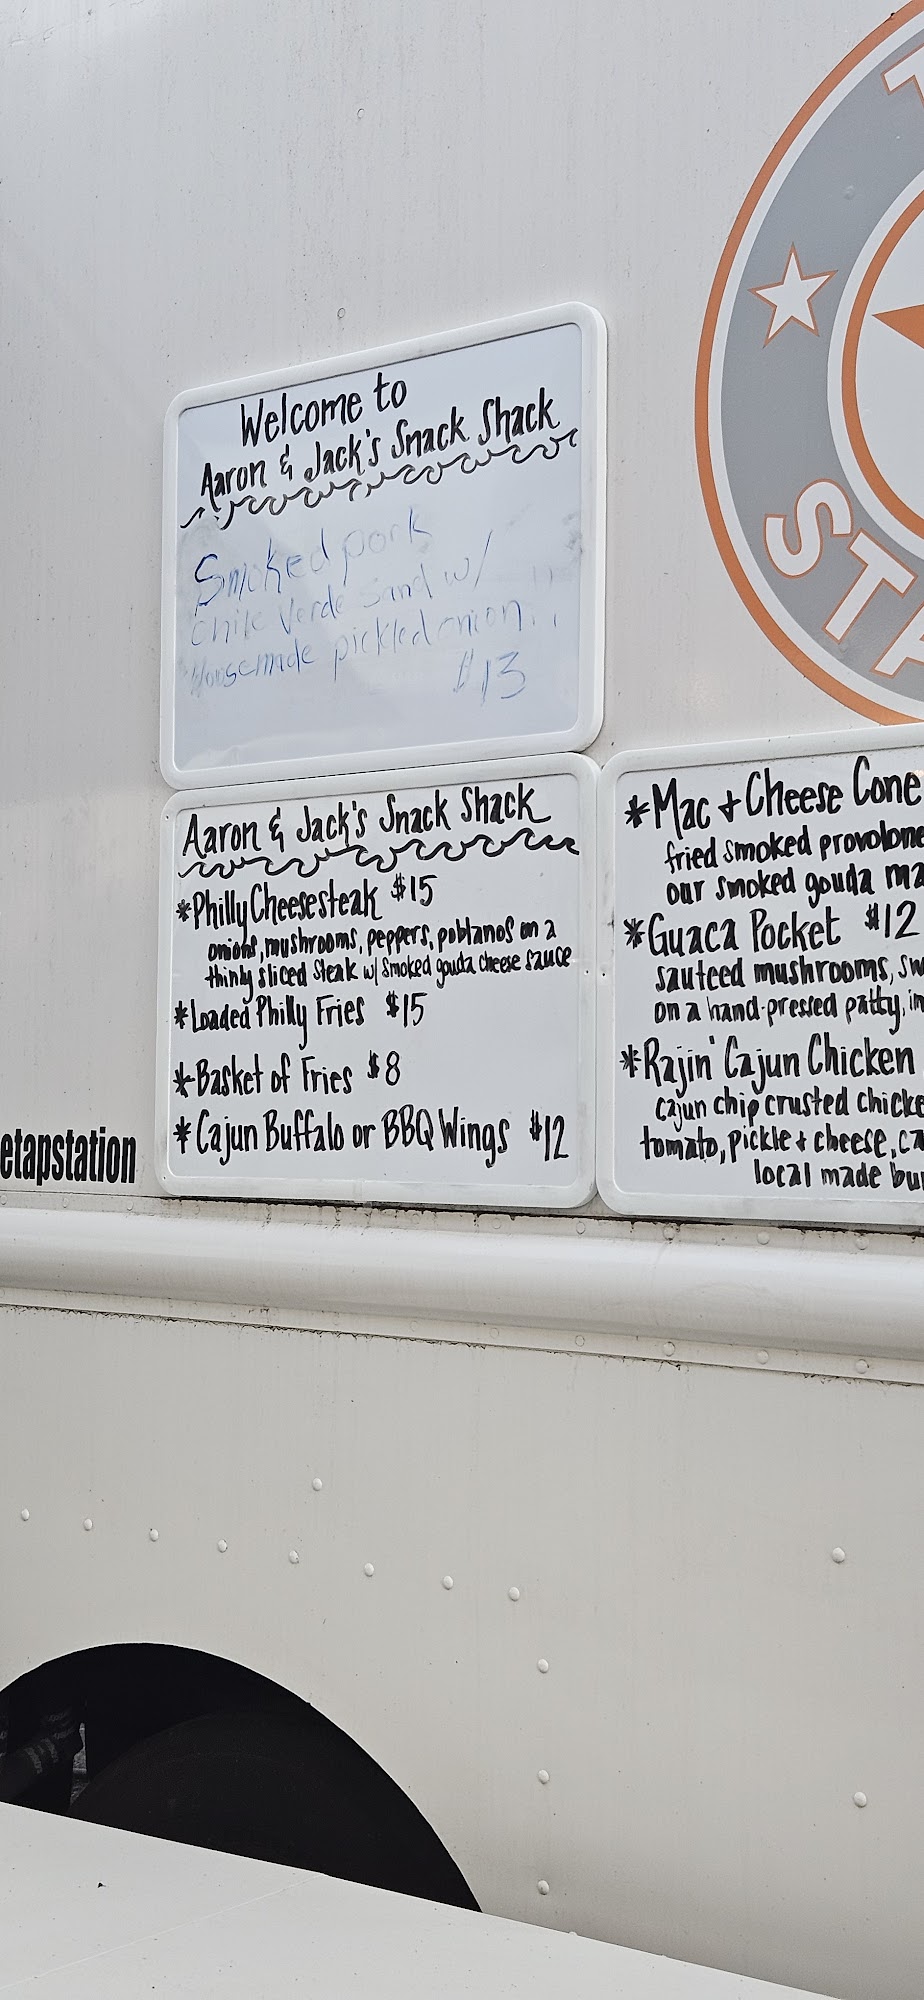 Welcome to
Aaron & Jack's Snack Shack
Smoked pork
Chile Verde Sand w/
Housemade pickled onion
$13
Aaron & Jack's Snack Shack
*Philly Cheesesteak $15
onions, mushrooms, peppers, poblanos on a
thinly sliced steak w/ smoked gouda cheese sauce
*Loaded Philly Fries $15
*Basket of Fries $8
*Cajun Buffalo or BBQ Wings $12
*Mac + Cheese Cone
fried smoked provolone
our smoked gouda ma
*Guaca Pocket $12
sauteed mushrooms, sw
on a hand-pressed patty, in
*Rajin' Cajun Chicken
cajun chip crusted chicke
tomato, pickle + cheese, ca
local made bu
etapstation
T
STA